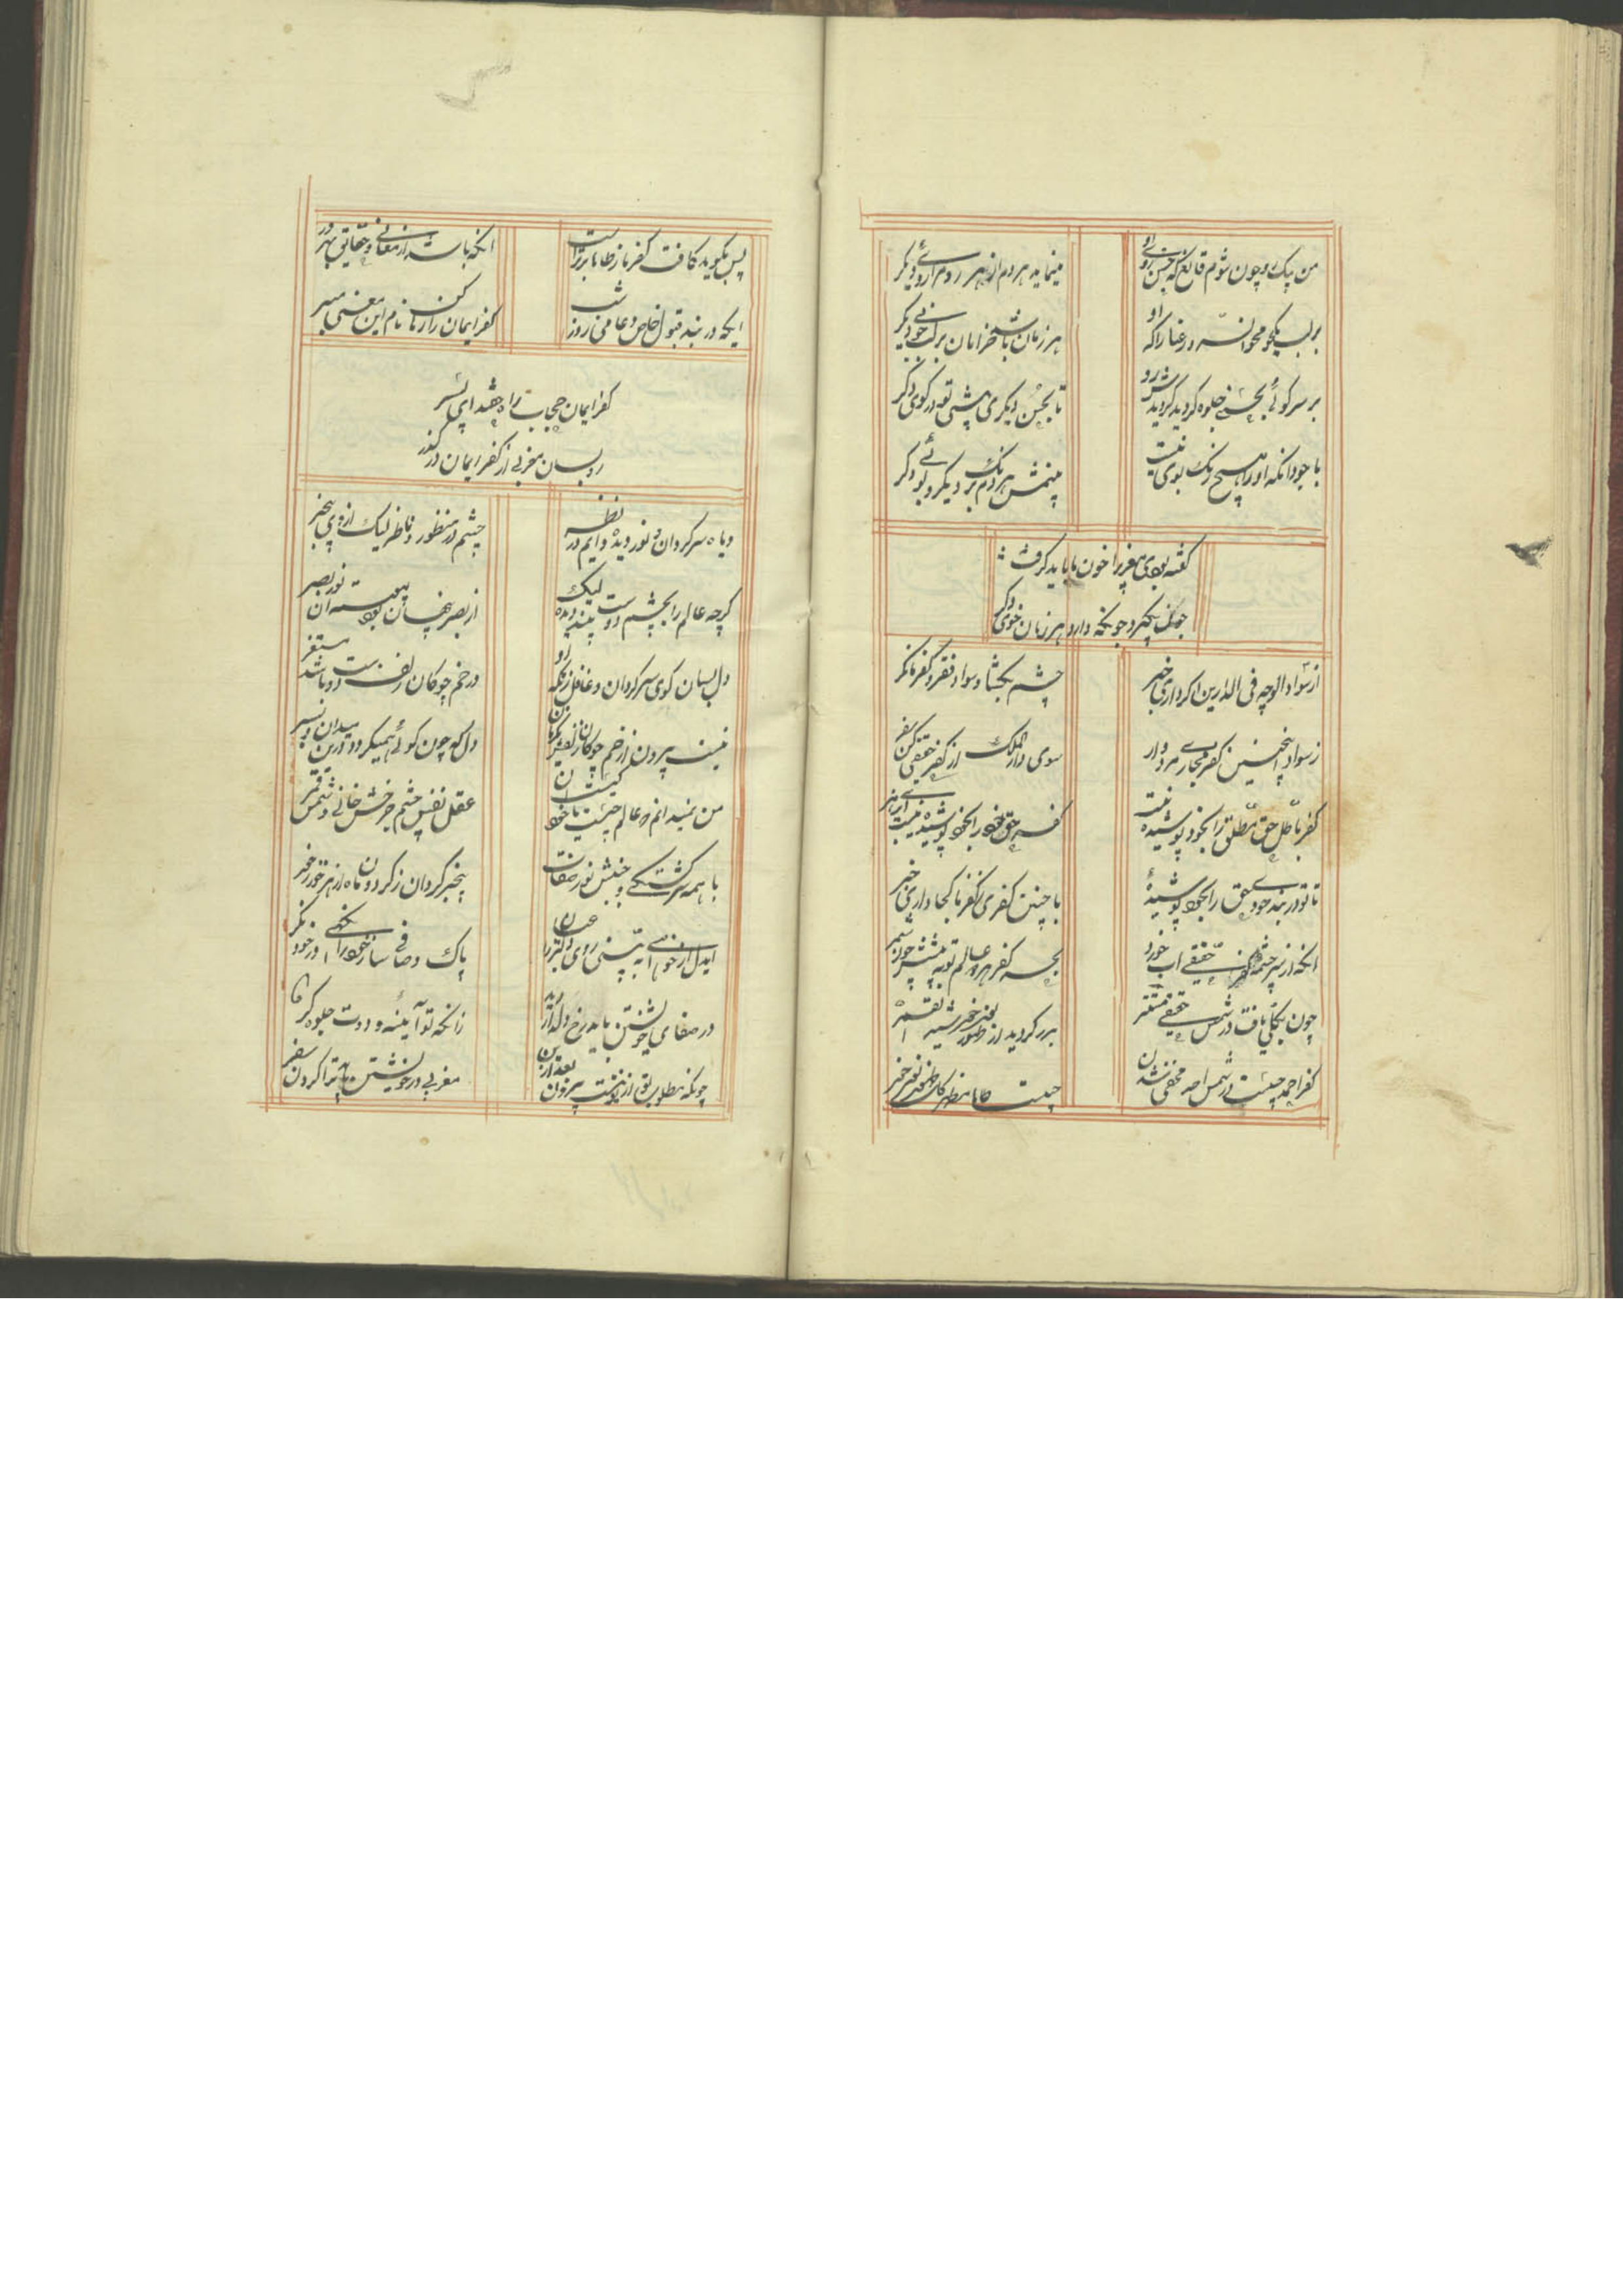 من بیک رو چون شوم قانع که حسن روی او
مینماید هر دم از هر رو مرا روئے دیگر
بر لب یکجو مجوانسرو رعنا را که او
هر زمان باشد خرامان بر لب جوئی دیگر
بر سر کوئے بحسنے جلوه کردید کردیدش رو
تا بحسن دیگری هشتی تو در کوی دگر
با جود انکه او را هیچ رنگ بوی نیست
مینمش هر دم برنگ دیگر و بوئے دگر
گفته بودی مغربی را خون ما باید گرفت
چون بگیرد چونکه دارد هر زمان خوی دگر
از سواد الوجه فی الدارین اگر داری خبر
چشم بکشا و سواد فقر و کفر ما نگر
ز سواد اینچنین کفر مجازے مرد وار
سوی دار الملک از کفر حقیقی کن سفر
کفر باطل حق مطلق را بخود پوشیده نیست
کفر حق خود را بخود پوشیده نیست ای پر هنر
تا تو در بند خودے حق را بخود پوشیدهٔ
با چنین کفری ز کفر ما کجا داری خبر
انکه از سرچشمه کفر حقیقے اب خورد
بحر کفر هر دو عالم تو به پیشش چون شمر
چون بکلی یافت در شمس حقیقے مستتر
بدر گردید از ظهور نور خورشید القمر
کفر احمد چیست در شمس احد مخفی شدن
چیست ما را مظهر کل ظهور نور خور
پس بگوید کافت کفر ما ز طاما برتر است
انکه باشد از معانی و حقایق بهره ور
ایکه در بند قبول خاص و عامی روز شب
کفر ایمان را رها کن نام این معنی مبر
کفر ایمان حجاب راه حقند ای پسر
رو بسان مغربی از کفر ایمان در گذر
دیده سرگردان و نور دیده دایم در نظر
چشم در منظور و ناظر لیک ازوی بیخبر
گرچه عالم را بچشم دوست بیند دیده لیک
از بصر پنهان بود پیوسته ان نور بصر
دل بسان گوی سرگردان و غافل زنکه او
در خم چوکان زلف دوست باشد مستقر
نیست بیرون از خم چوکان زلفش یکزمان
دل که چون کوئے همیگردد درین میدان بسر
من نمیدانم در عالم چیست یا خود کیست ان
عقل نفس چشم چرخ خش خانی و شمس قمر
با همه سرگشتگے و جنبش نور صفات
بیخبر گردان ز گردون ماه از هر خور ز خور
ایدل ار خواهے به بینی روی دلبر را عیان
پاک و صافے ساز خود را انگهے در خود نگر
در صفای خویشتن باید رخ دلدار دید
زانکه تو آئینه و دوست جلوه گر
چونکه مطلوب تو از تو نیست بیرون بعد ازین
مغربی در خویشتن باید ترا کردن سفر